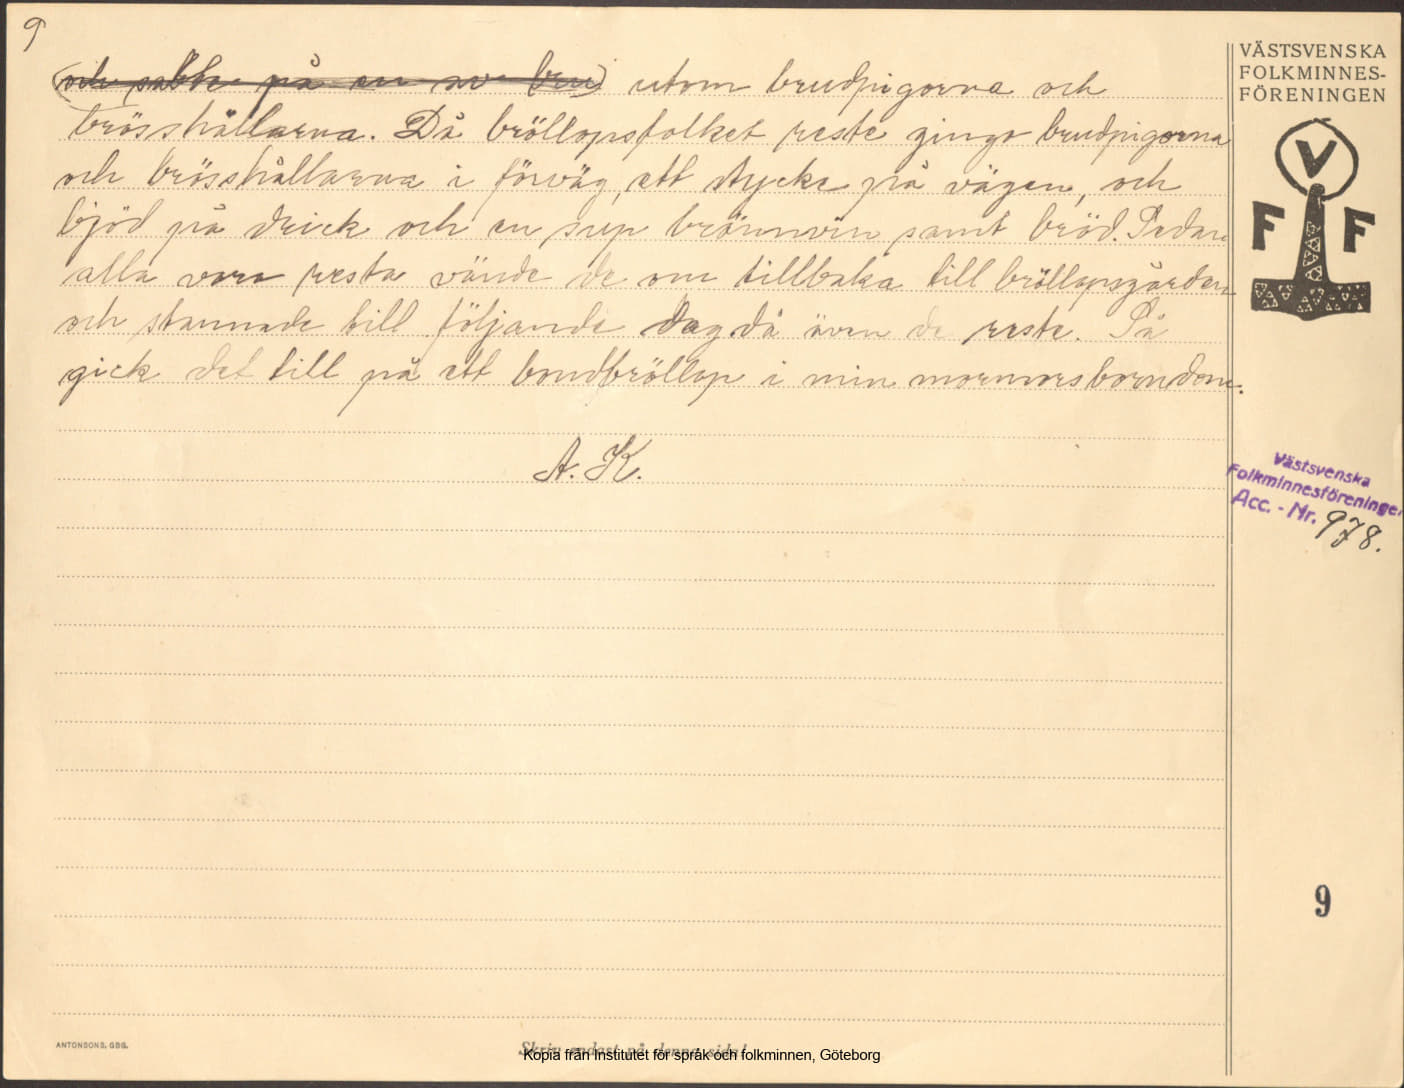 9
och satte på en av bru utom brudpigorna och
brösshållarna. Då bröllopsfolket reste gingo brudpigorna
och brösshållarna i förväg, ett stycke på vägen, och
bjöd på drick och en sup brännvin samt bröd. Sedan
alla voro resta vände de om tillbaka till bröllopsgården
och stannade till följande dag då även de reste. Så
gick det till på ett bondbröllop i min mormors barndom.
A. K.
VÄSTSVENSKA
FOLKMINNES-
FÖRENINGEN
V
F F
Västsvenska
Folkminnesföreningen
Acc. - Nr. 978.
9
ANTONSONS, GBG.
Skriv endast på denna sida!
Kopia från Institutet för språk och folkminnen, Göteborg